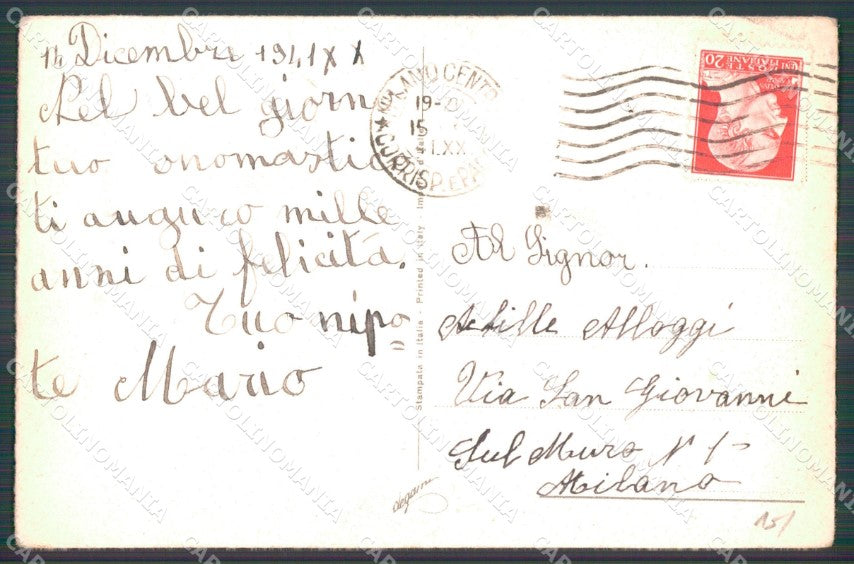 14 Dicembre 1941 XX
Nel bel giorn
tuo onomastic
ti auguro mille
anni di felicità.
Tuo nipo=
te Mario
MILANO CENTR
19-
15
XX
CORRISP. E PA
POSTE ITALIANE
20
Al Signor.
Achille Alloggi
Via San Giovanni
Sul Muro N 1-
Milano
Stampata in Italia - Printed in Italy
degami
15/
CARTOLINOMANIA